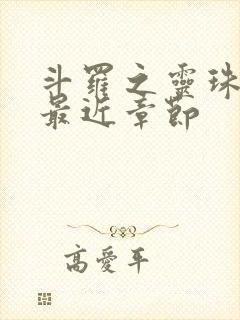 斗羅之靈珠
最近章節
高愛平